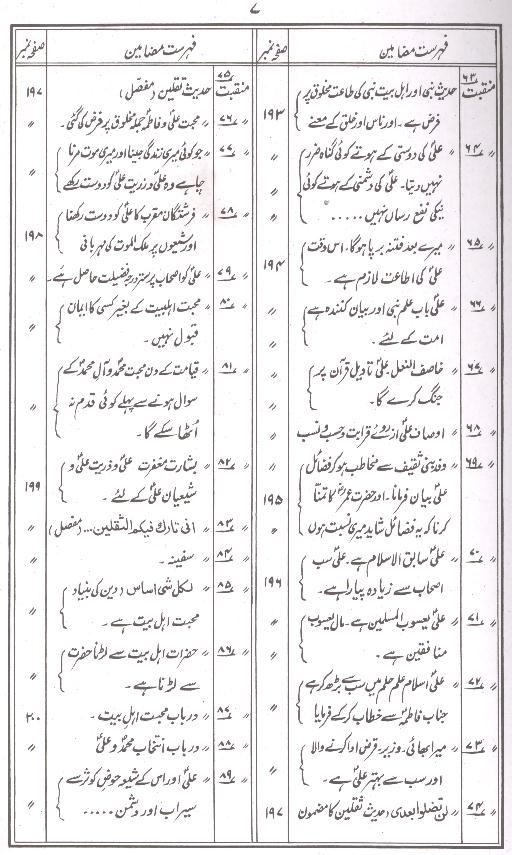 ۷
فہرست مضامین صفحہ نمبر
منقبت ۶۳ حدیث نبی اور اہل بیت نبی کی طاعت مخلوق پر
فرض ہے۔ اور ناس اور خلق کے معنے ۱۹۳
〃 ۶۴ 〃 علیؑ کی دوستی کے ہوتے کوئی گناہ ضرر 〃
نہیں دیتا۔ علیؑ کی دشمنی کے ہوتے کوئی
نیکی نفع رساں نہیں ..... 〃
〃 ۶۵ 〃 میرے بعد فتنہ برپا ہوگا۔ اس وقت
علیؑ کی اطاعت لازم ہے۔ ۱۹۴
〃 ۶۶ 〃 علیؑ باب علم نبی اور بیان کنندہ ہے 〃
امت کے لئے۔ 〃
〃 ۶۷ 〃 خاصف النعل۔ علیؑ تاویل قرآن پر 〃
جنگ کرے گا۔ 〃
〃 ۶۸ 〃 اوصاف علیؑ از روئے قرابت و حسب و نسب 〃
〃 ۶۹ 〃 وفد بنی ثقیف سے مخاطب ہو کر فضائل 〃
علیؑ بیان فرمانا۔ اور حضرت عمرؓ کا تمنّا ۱۹۵
کرنا کہ یہ فضائل شاید میری نسبت ہوں
〃 ۷۰ 〃 علیؑ سابق الاسلام ہے۔ علیؑ سب
اصحاب سے زیادہ پیارا ہے۔ ۱۹۶
〃 ۷۱ 〃 علیؑ یعسوب المسلمین ہے۔ مال یعسوب 〃
منافقین ہے۔ 〃
〃 ۷۲ 〃 علیؑ اسلام علم حلم میں سب سے بڑھ کر ہے 〃
جناب فاطمہؑ سے خطاب کرکے فرمایا
〃 ۷۳ 〃 میرا بھائی۔ وزیر۔ قرض ادا کرنے والا
اور سب سے بہتر علیؑ ہے۔ 〃
〃 ۷۴ 〃 لن تضلوا بعدی (حدیث ثقلین کا مضمون ۱۹۷
فہرست مضامین صفحہ نمبر
منقبت ۷۵ حدیث ثقلین (مفصّل) ۱۹۷
〃 ۷۶ 〃 محبت علیؑ و فاطمہؑ جملہ مخلوق پر فرض کی گئی۔ 〃
〃 ۷۷ 〃 جو کوئی میری زندگی جینا اور میری موت مرنا
چاہے وہ علیؑ و ذریت علیؑ کو دوست رکھے 〃
〃 ۷۸ 〃 فرشتگان مقرب کا علیؑ کو دوست رکھنا
اور شیعوں پر ملک الموت کی مہربانی ۱۹۸
〃 ۷۹ 〃 علیؑ کو اصحاب پر ستر درجہ فضیلت حاصل ہے۔ 〃
〃 ۸۰ 〃 محبت اہلبیت کے بغیر کسی کا ایمان
قبول نہیں۔ 〃
〃 ۸۱ 〃 قیامت کے دن محبت محمدؐ و آل محمدؐ کے
سوال ہونے سے پہلے کوئی قدم نہ
اٹھا سکے گا۔ 〃
〃 ۸۲ 〃 بشارت مغفرت علیؑ و ذریت علیؑ و
شیعیان علیؑ کے لئے۔ ۱۹۹
〃 ۸۳ 〃 انی تارک فیکم الثقلین... (مفصل) 〃
〃 ۸۴ 〃 سفینہ۔ 〃
〃 ۸۵ 〃 لکل شئ اساس (دین کی بنیاد
محبت اہل بیت ہے۔ 〃
〃 ۸۶ 〃 حضرات اہل بیت سے لڑنا حضرت
سے لڑنا ہے۔ 〃
〃 ۸۷ 〃 در باب محبت اہل بیت۔ ۲۰۰
〃 ۸۸ 〃 در باب انتخاب محمدؐ و علیؑ 〃
〃 ۸۹ 〃 علیؑ اور اس کے شیعہ حوض کوثر سے
سیراب اور دشمن ..... 〃